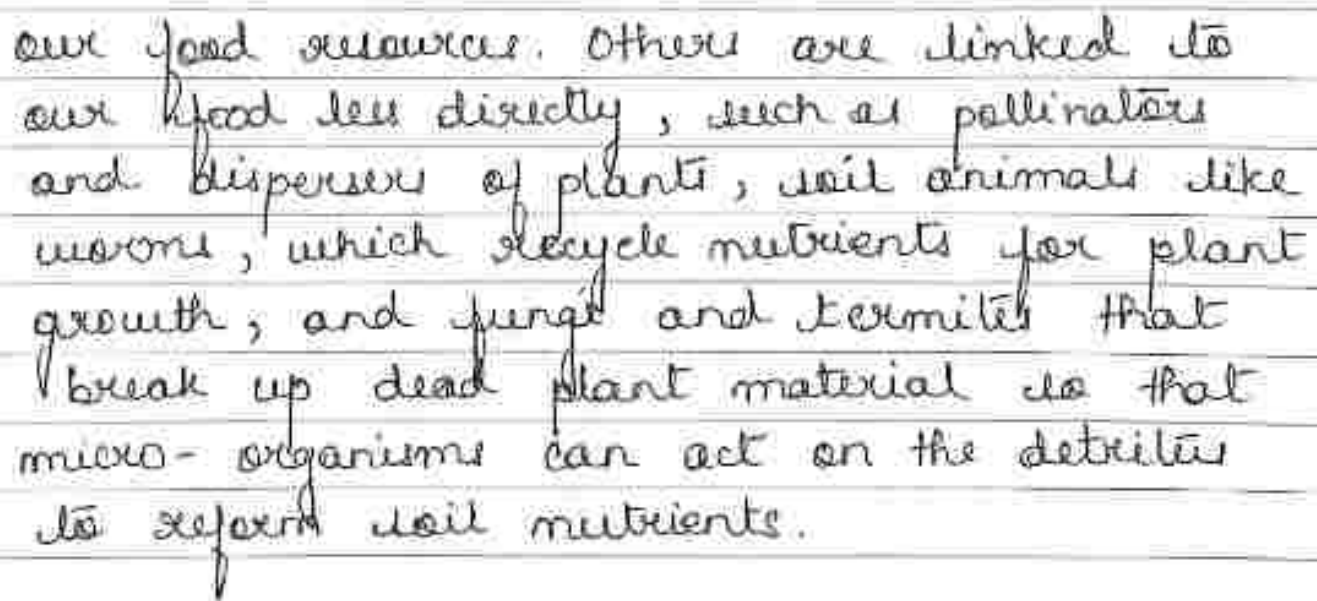 our food resources. Others are linked to
our food less directly, such as pollinators
and dispersers of plants, soil animals like
worms, which recycle nutrients for plant
growth, and fungi and termites that
break up dead plant material so that
micro-organisms can act on the detritus
to reform soil nutrients.